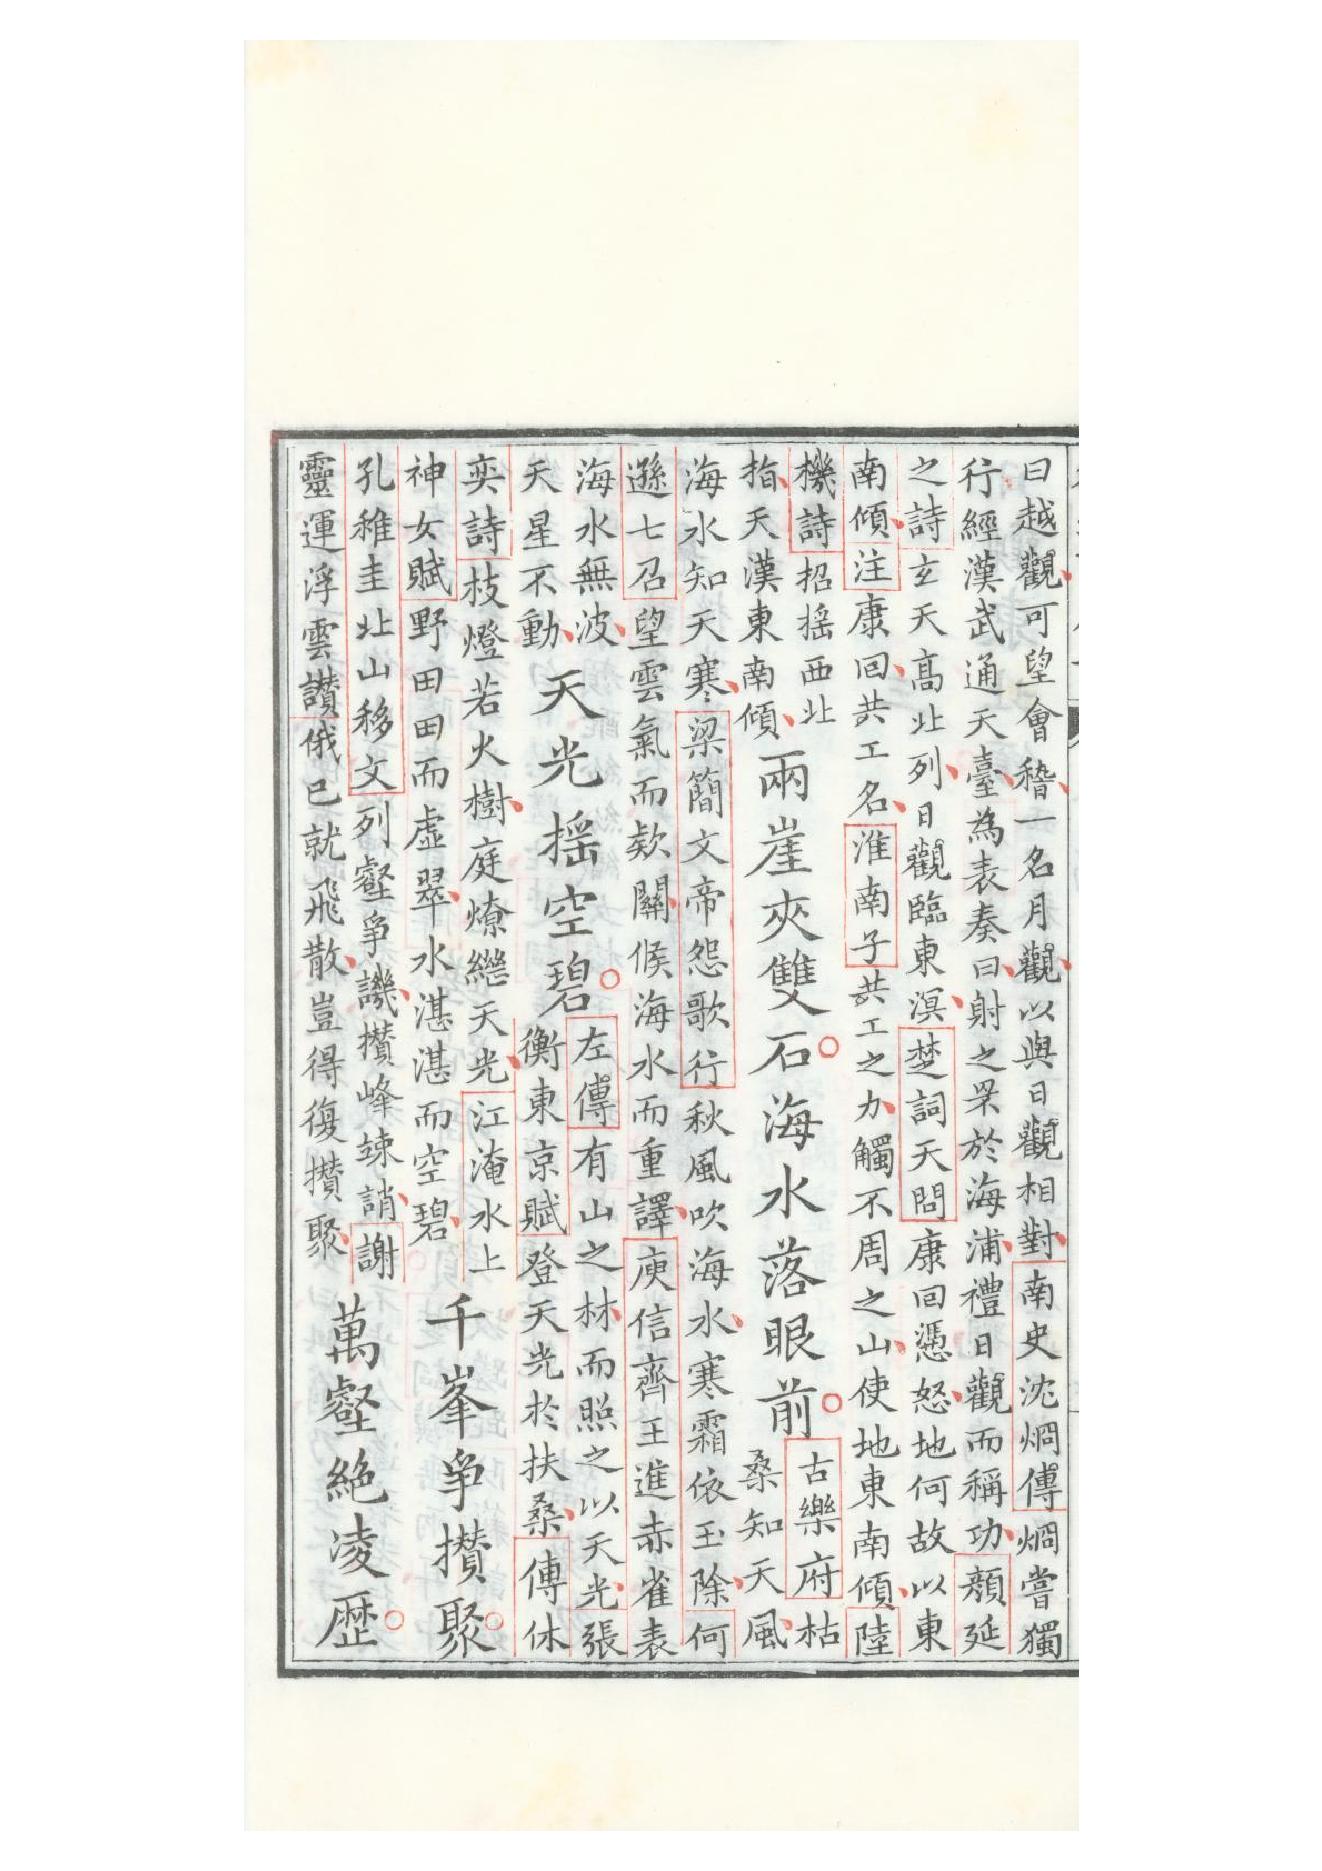 曰越觀可望會稽一名月觀以與日觀相對南史沈烱傳烱嘗獨
行經漢武通天臺為表奏曰射之罘於海浦禮日觀而稱功顏延
之詩玄天高北列日觀臨東溟楚詞天問康回憑怒地何故以東
南傾注康回共工名淮南子共工之力觸不周之山使地東南傾陸
機詩招搖西北
指天漢東南傾
兩崖夾雙石海水落眼前
古樂府枯
桑知天風
海水知天寒梁簡文帝怨歌行秋風吹海水寒霜依玉除何
遜七召望雲氣而欵關候海水而重譯庾信齊王進赤雀表
海水無波
天星不動
天光搖空碧
左傳有山之林而照之以天光張
衡東京賦登天光於扶桑傅休
奕詩枝燈若火樹庭燎繼天光江淹水上
神女賦野田田而虛翠水湛湛而空碧
千峯爭攢聚
孔稚圭北山移文列壑爭譏攢峰竦誚謝
靈運浮雲讃俄已就飛散豈得復攢聚
萬壑絕凌歷